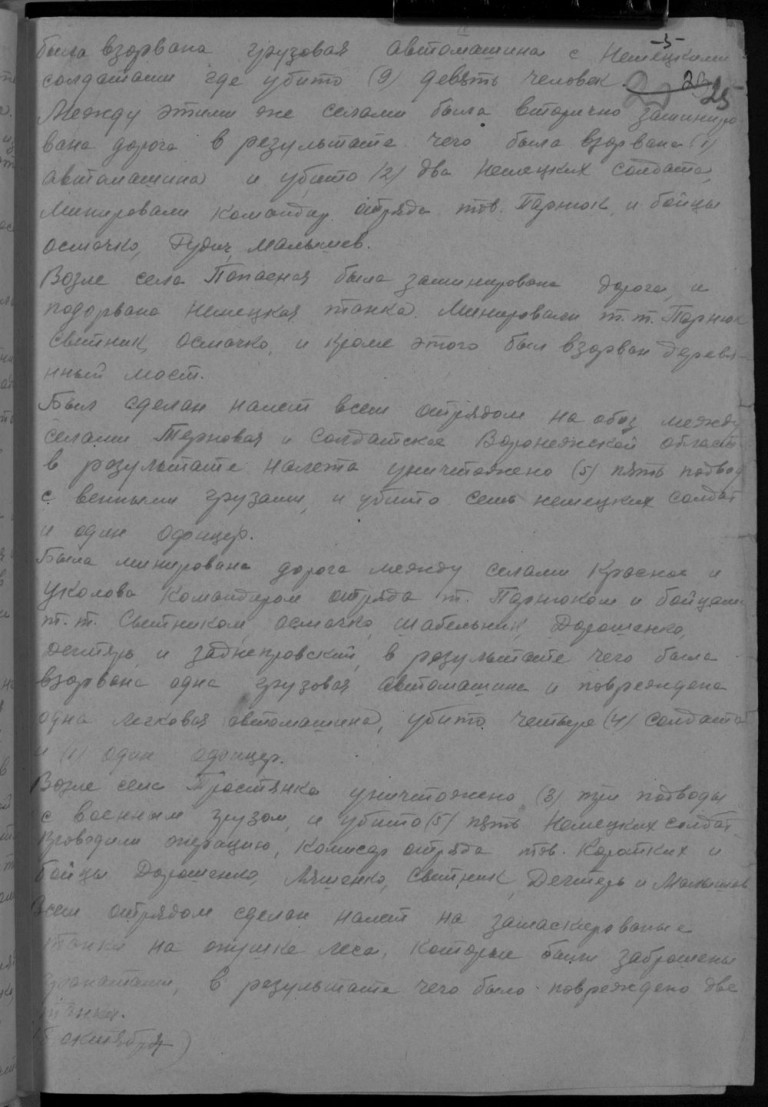 -5-
была взорвана грузовая автомашина с немецкими
солдатами где убито (9) девять человек
25
Между этими же селами была вторично заминиро
вана дорога в результате чего была взорвана (1)
автомашина и убито (2) два немецких солдата,
минировали командир отряда тов. Парнюк и бойцы
Осмачко, Рудич, Малышев.
Возле села Попасная была заминирована дорога, и
подорвана немецкая танка. Минировали т.т. Парнюк
Свитник, Осмачко, и кроме этого был взорван деревя-
нный мост.
Был сделан налет всем отрядом на обоз между
селами Терновая и Солдатское Воронежской области
в результате налета уничтожено (5) пять подвод
с венными грузами, и убито семь немецких солдат
и один офицер.
Была минирована дорога между селами Красное и
Уколова командиром отряда т. Парнюком и бойцами
т.т. Свитником, Осмачко, Шабельник, Дорошенко,
и Заднепровский, в результате чего была
взорвана одна грузовая автомашина и повреждена
одна легковая автомашина, убито четыре (4) солдата
и (1) один офицер.
Возле села Тростянка уничтожено (3) три подводы
с военным грузом, и убито (5) пять немецких солдат.
Проводили операцию, комисар отряда тов. Коротких и
бойцы Дорошенко, Ляшенко, Свитник, Дехтерь и
Всем отрядом сделан налет на замаскированые
танки на опушке леса, которые были заброшены
гранатами, в результате чего было повреждено две
танки.
октября)